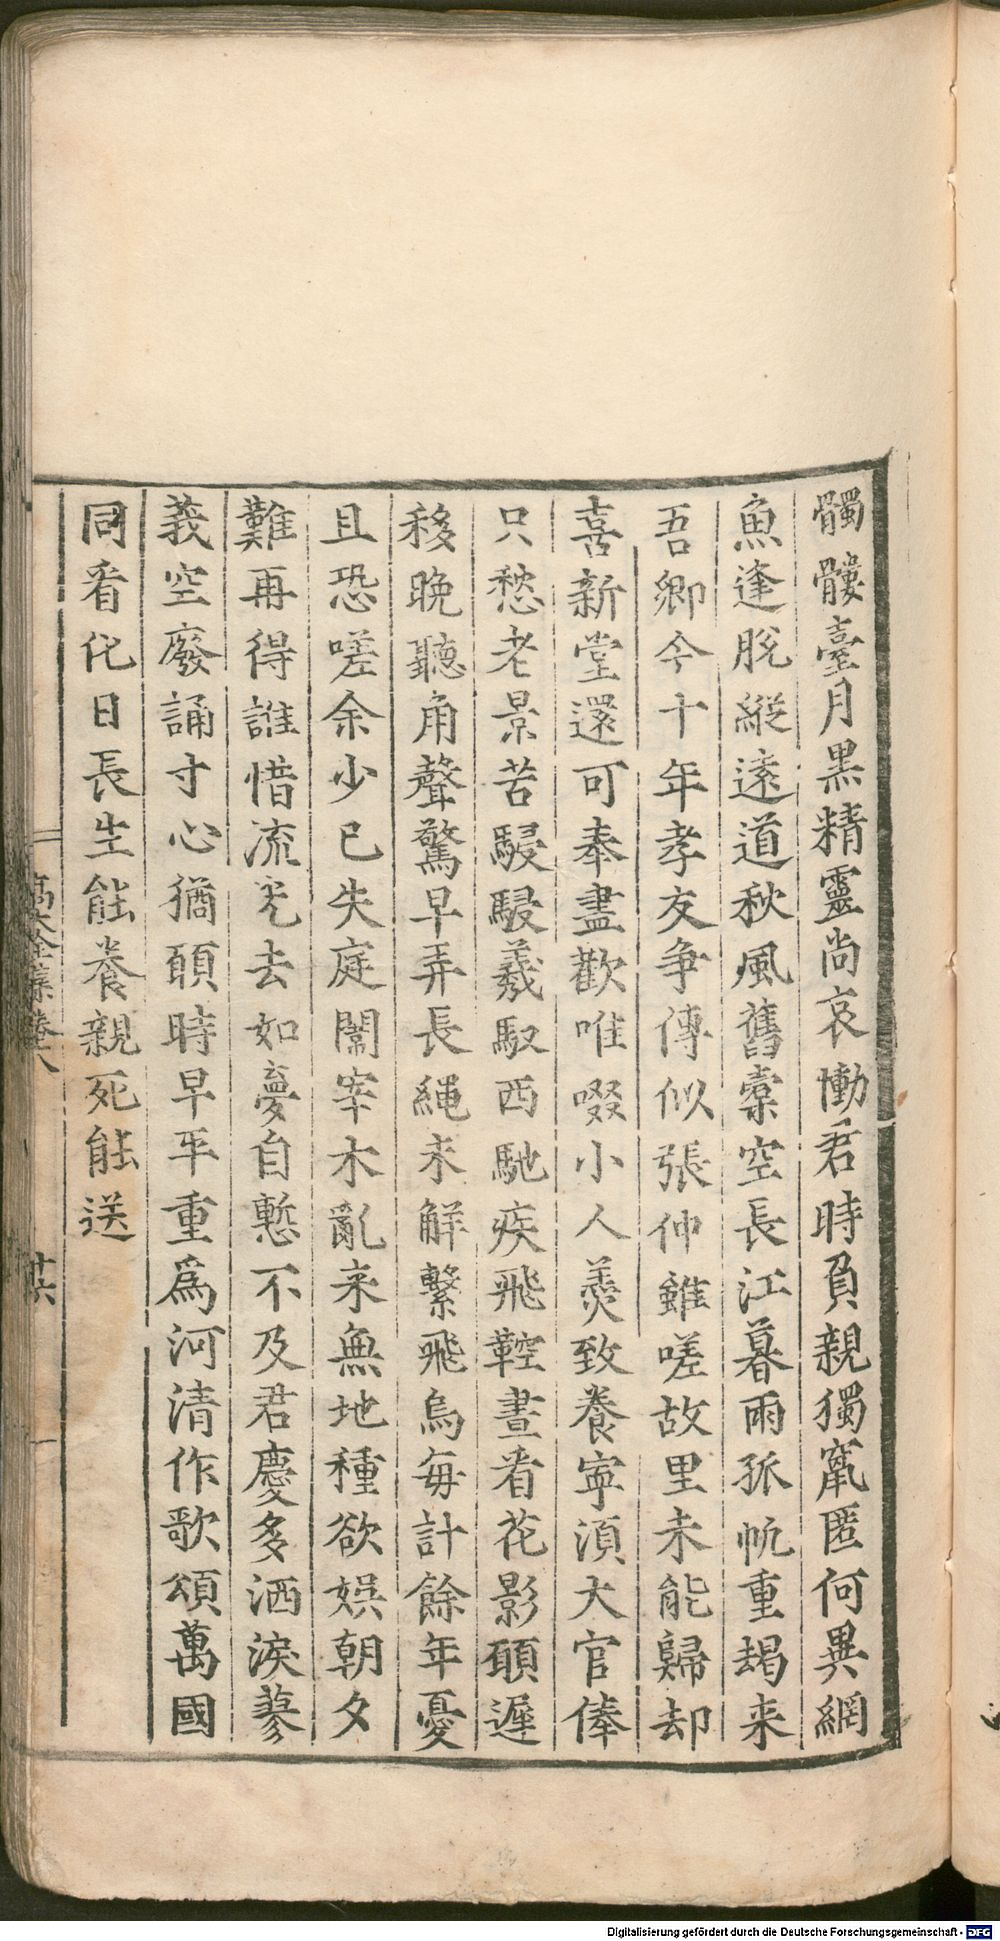 髑髏臺月黒精靈尚哀慟君時負親獨竄匿何異網
魚逢脫縱遠道秋風舊槖空長江暮雨孤帆重朅来
吾鄉今十年孝友爭傳似張仲雖嗟故里未能歸却
喜新堂還可奉盡歡唯啜小人羮致養寧湏大官俸
只愁老景苦駸駸羲馭西馳疾飛鞚晝看花影頋遲
移晚聽角聲驚早弄長繩未解繫飛烏每計餘年憂
且恐嗟余少已失庭闈宰木亂来無地種欲娯朝夕
難再得誰惜流光去如夢自慙不及君慶多洒淚蓼
莪空廢誦寸心猶頋時早平重爲河清作歌頌萬國
同看化日長生能養親死能送
髙大全集卷八
十六
Digitalisierung gefördert durch die Deutsche Forschungsgemeinschaft - DFG